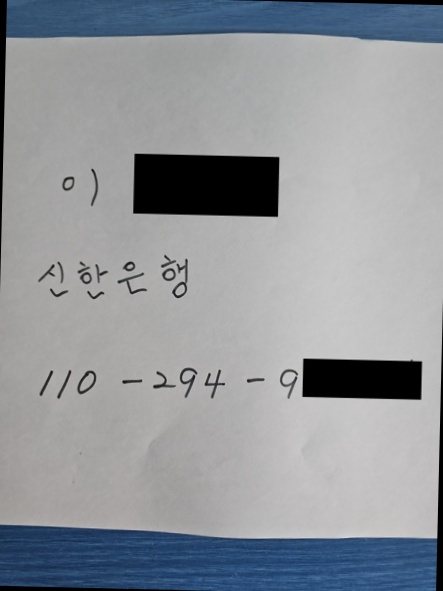 이
신한은행
110-294-9